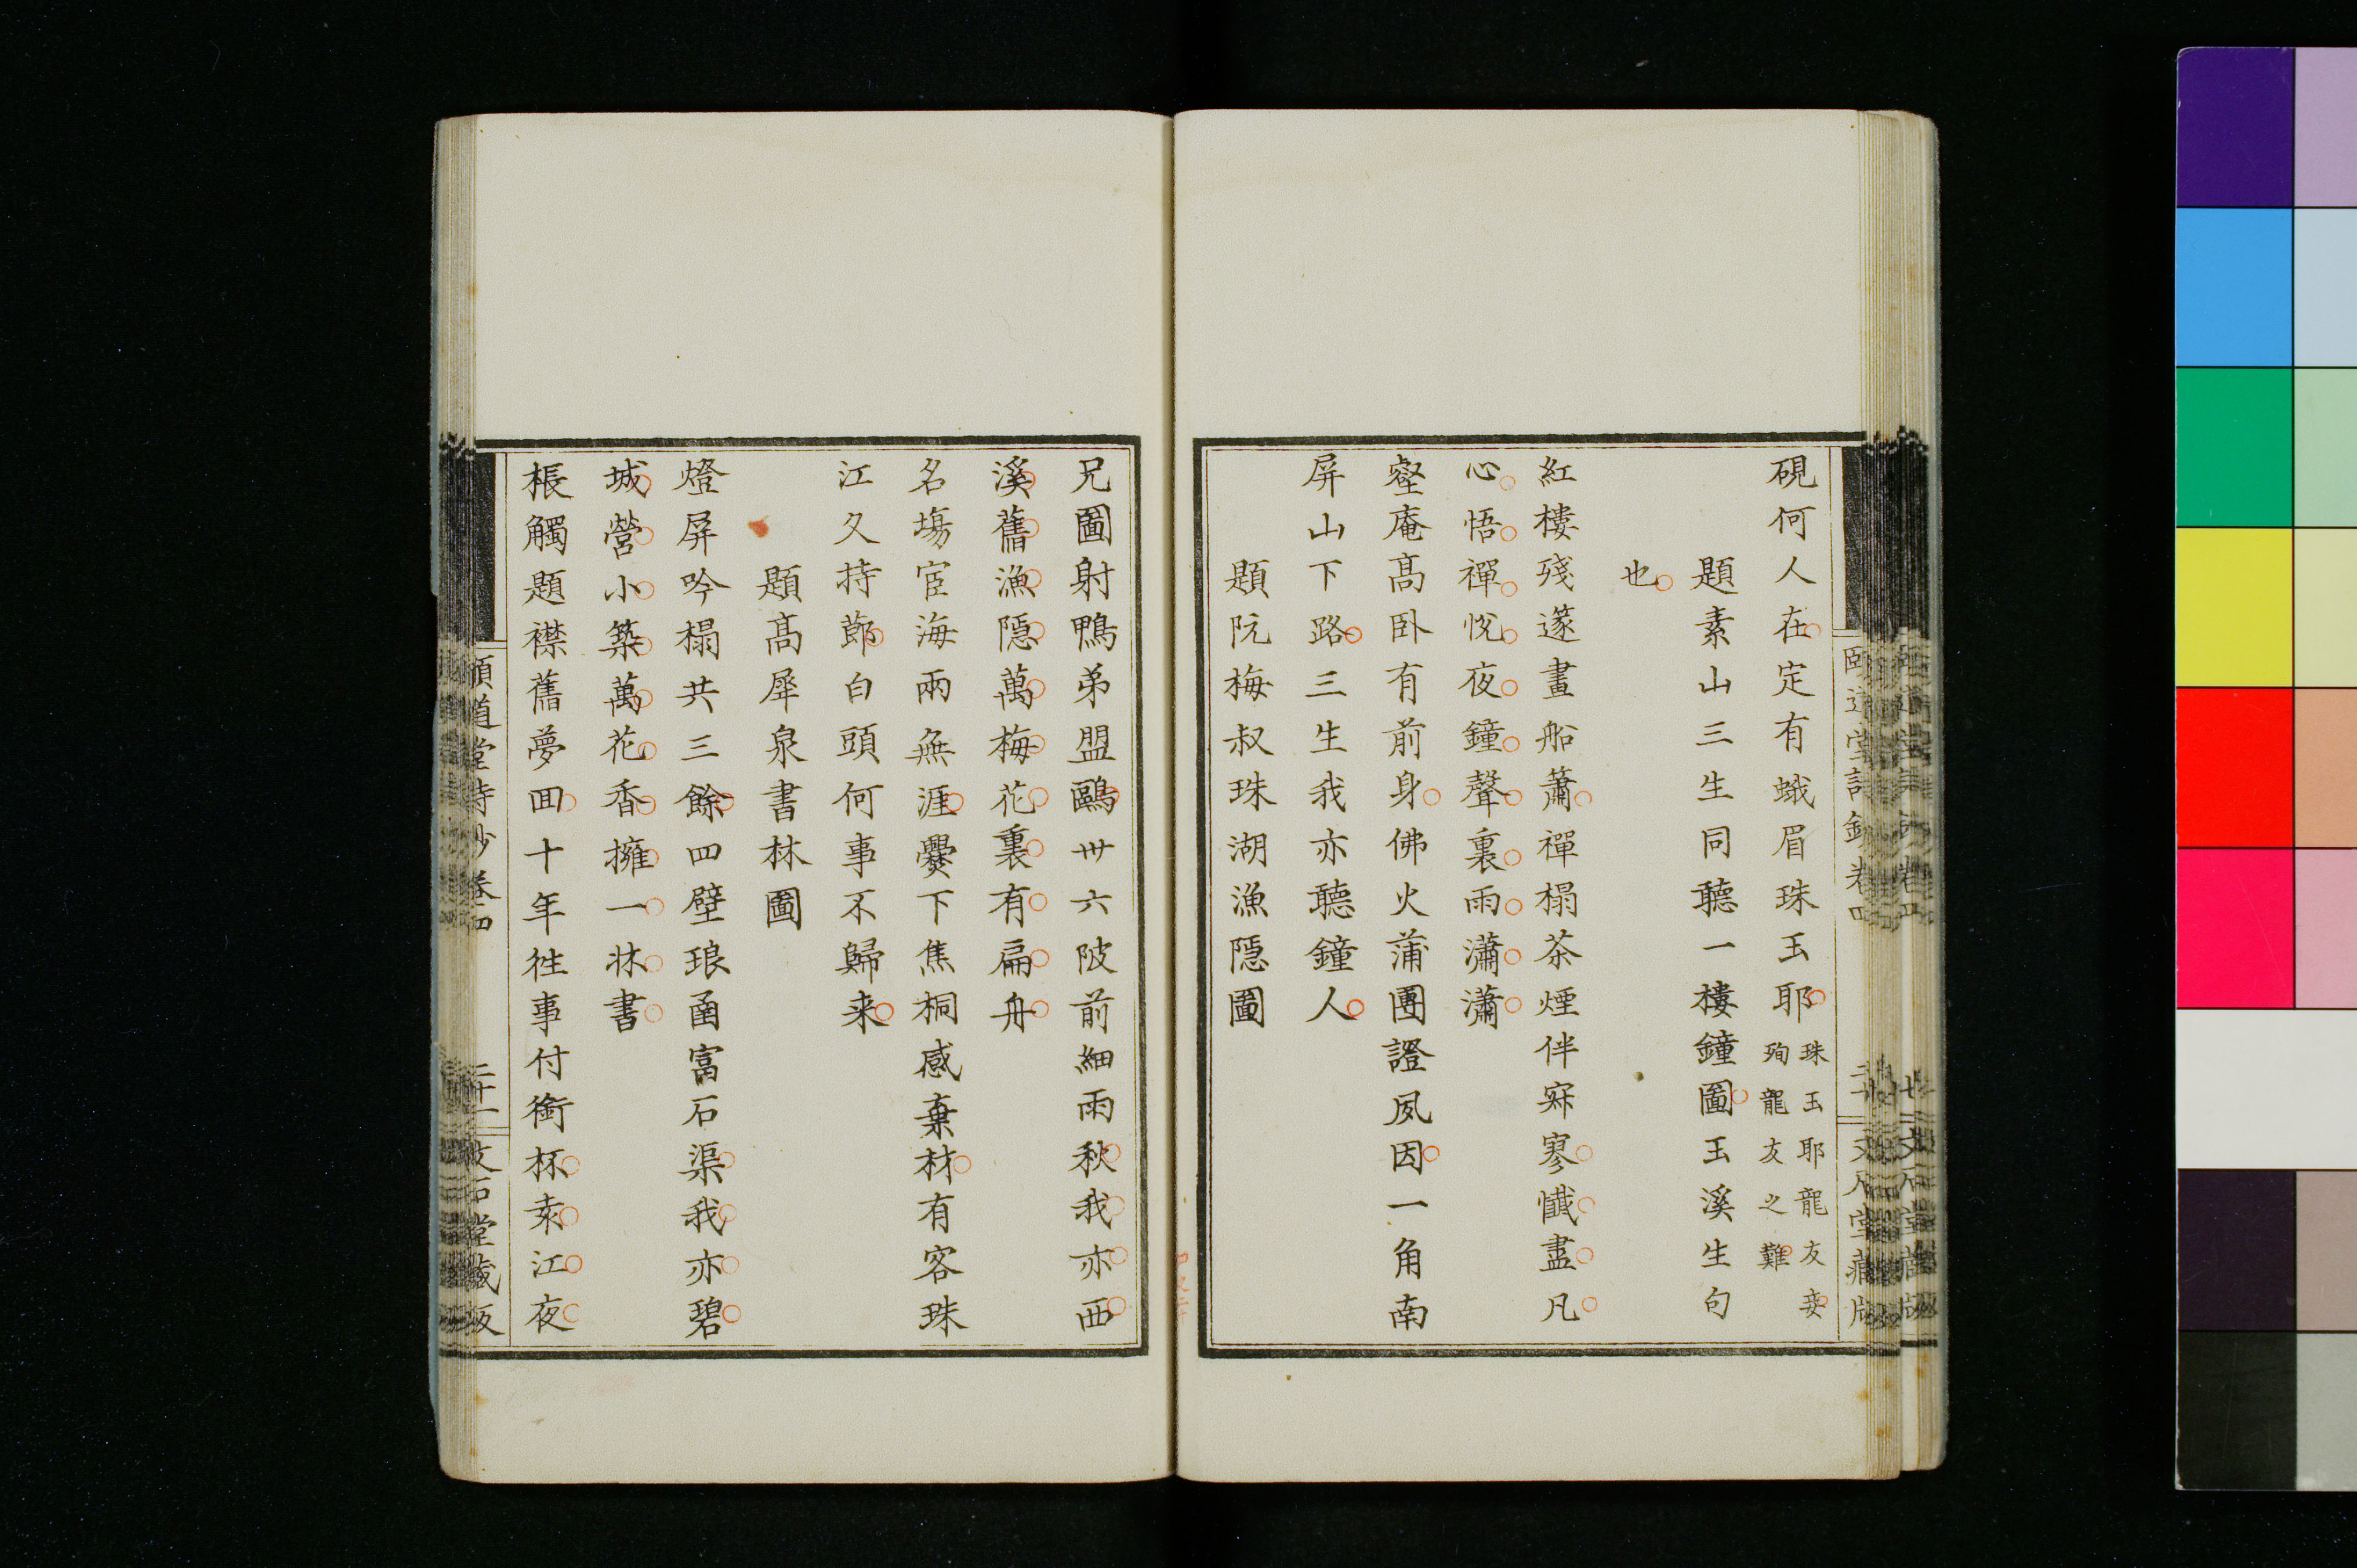 硯何人在定有蛾眉珠玉耶
珠玉耶龍友妾
殉龍友之難
題素山三生同聽一樓鐘圖玉溪生句
也
紅樓殘邃畫船蕭禪榻茶煙伴寂寥懺盡凡
心悟禪悅夜鐘聲裏雨瀟瀟
壑庵高卧有前身佛火蒲團證夙因一角南
屏山下路三生我亦聽鐘人
題阮梅叔珠湖漁隱圖
兄圖射鴨弟盟鷗卅六陂前細雨秋我亦西
溪舊漁隱萬梅花裏有扁舟
名塲宦海兩無涯爨下焦桐感棄材有客珠
江久持節白頭何事不歸来
題高犀泉書林圖
燈屏吟榻共三餘四壁琅函富石渠我亦碧
城營小築萬花香擁一牀書
棖觸題襟舊夢囬十年徃事付銜杯柰江夜
頤道堂詩鈔卷四
二十一
文石堂藏版